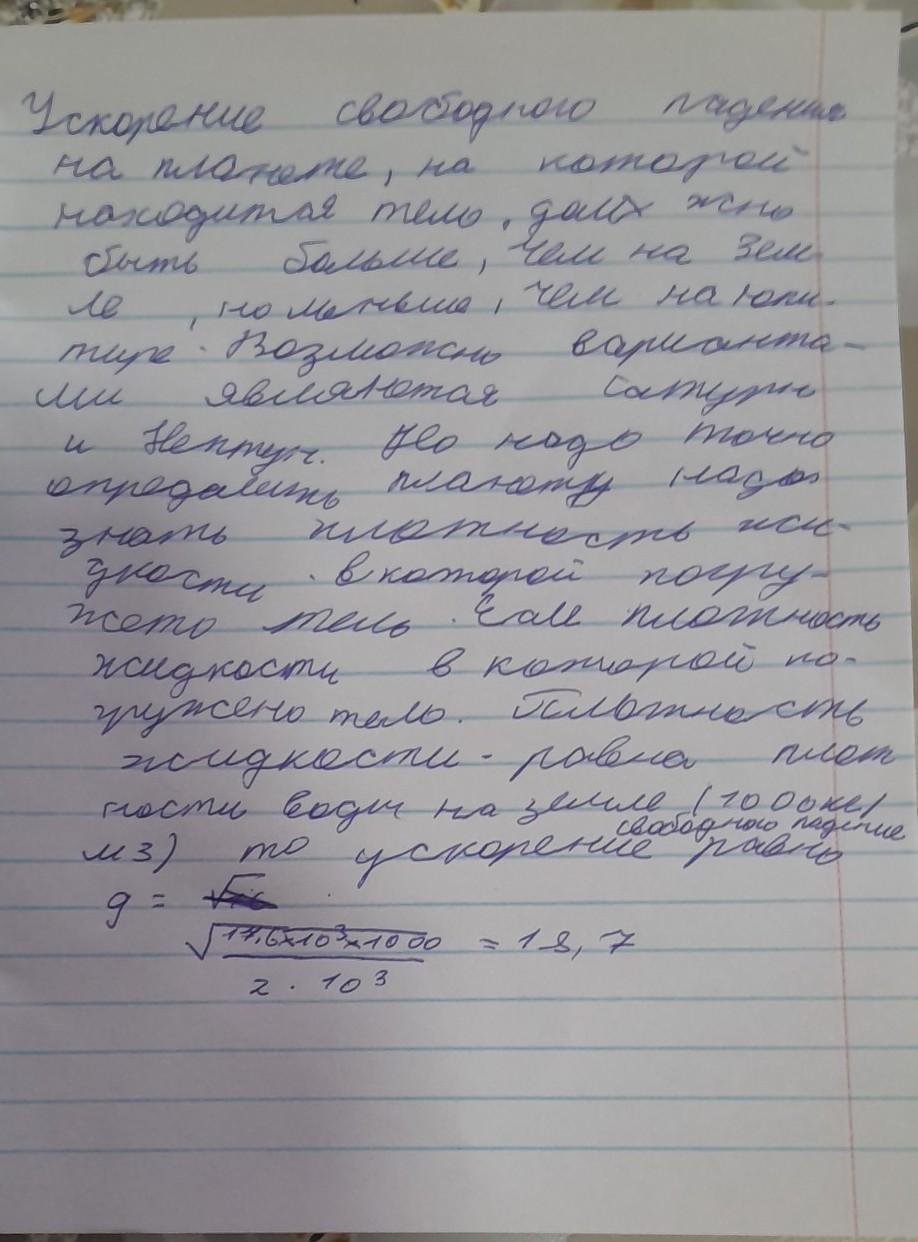 Ускорение свободного падения
на планете, на которой
находится тело, долх жно
быть больше, чем на Зем
ле, но меньше, чем на Юпи-
тире. Возможно варианта-
ми являются Сатурн
и Нептун. Но надо точно
определить планету надо
знать плотность жи-
дкости в которой погру-
жето тело. Чем плотность
жидкости в которой по-
гружено тело. Плотность
жидкости - равна плот
ности воды на земле (1000кг/
м3) то ускорение свободного падение равно
g =
√17,6×10³×1000 / 2 · 10³ = 18,7